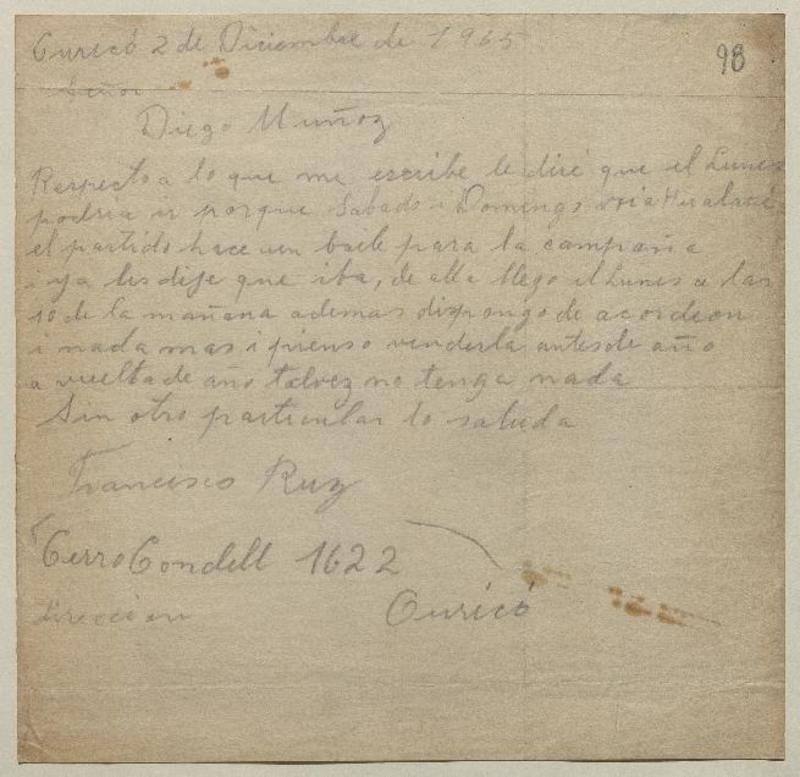 Curicó 2 de Diciembre de 1965
98
Señor
Diego Muñoz
Respecto a lo que me escribe le diré que el Lunes
podria ir porque Sabado i Domingo voi a Hualañé
el partido hace un baile para la campaña
i ya les dije que iba, de alla llego el Lunes a las
10 de la mañana ademas dispongo de acordeon
i nada mas i pienso venderla antes de año
a vuelta de año talvez no tenga nada
Sin otro particular lo saluda
Francisco Ruz
Cerro Condell 1622
direccion Curicó